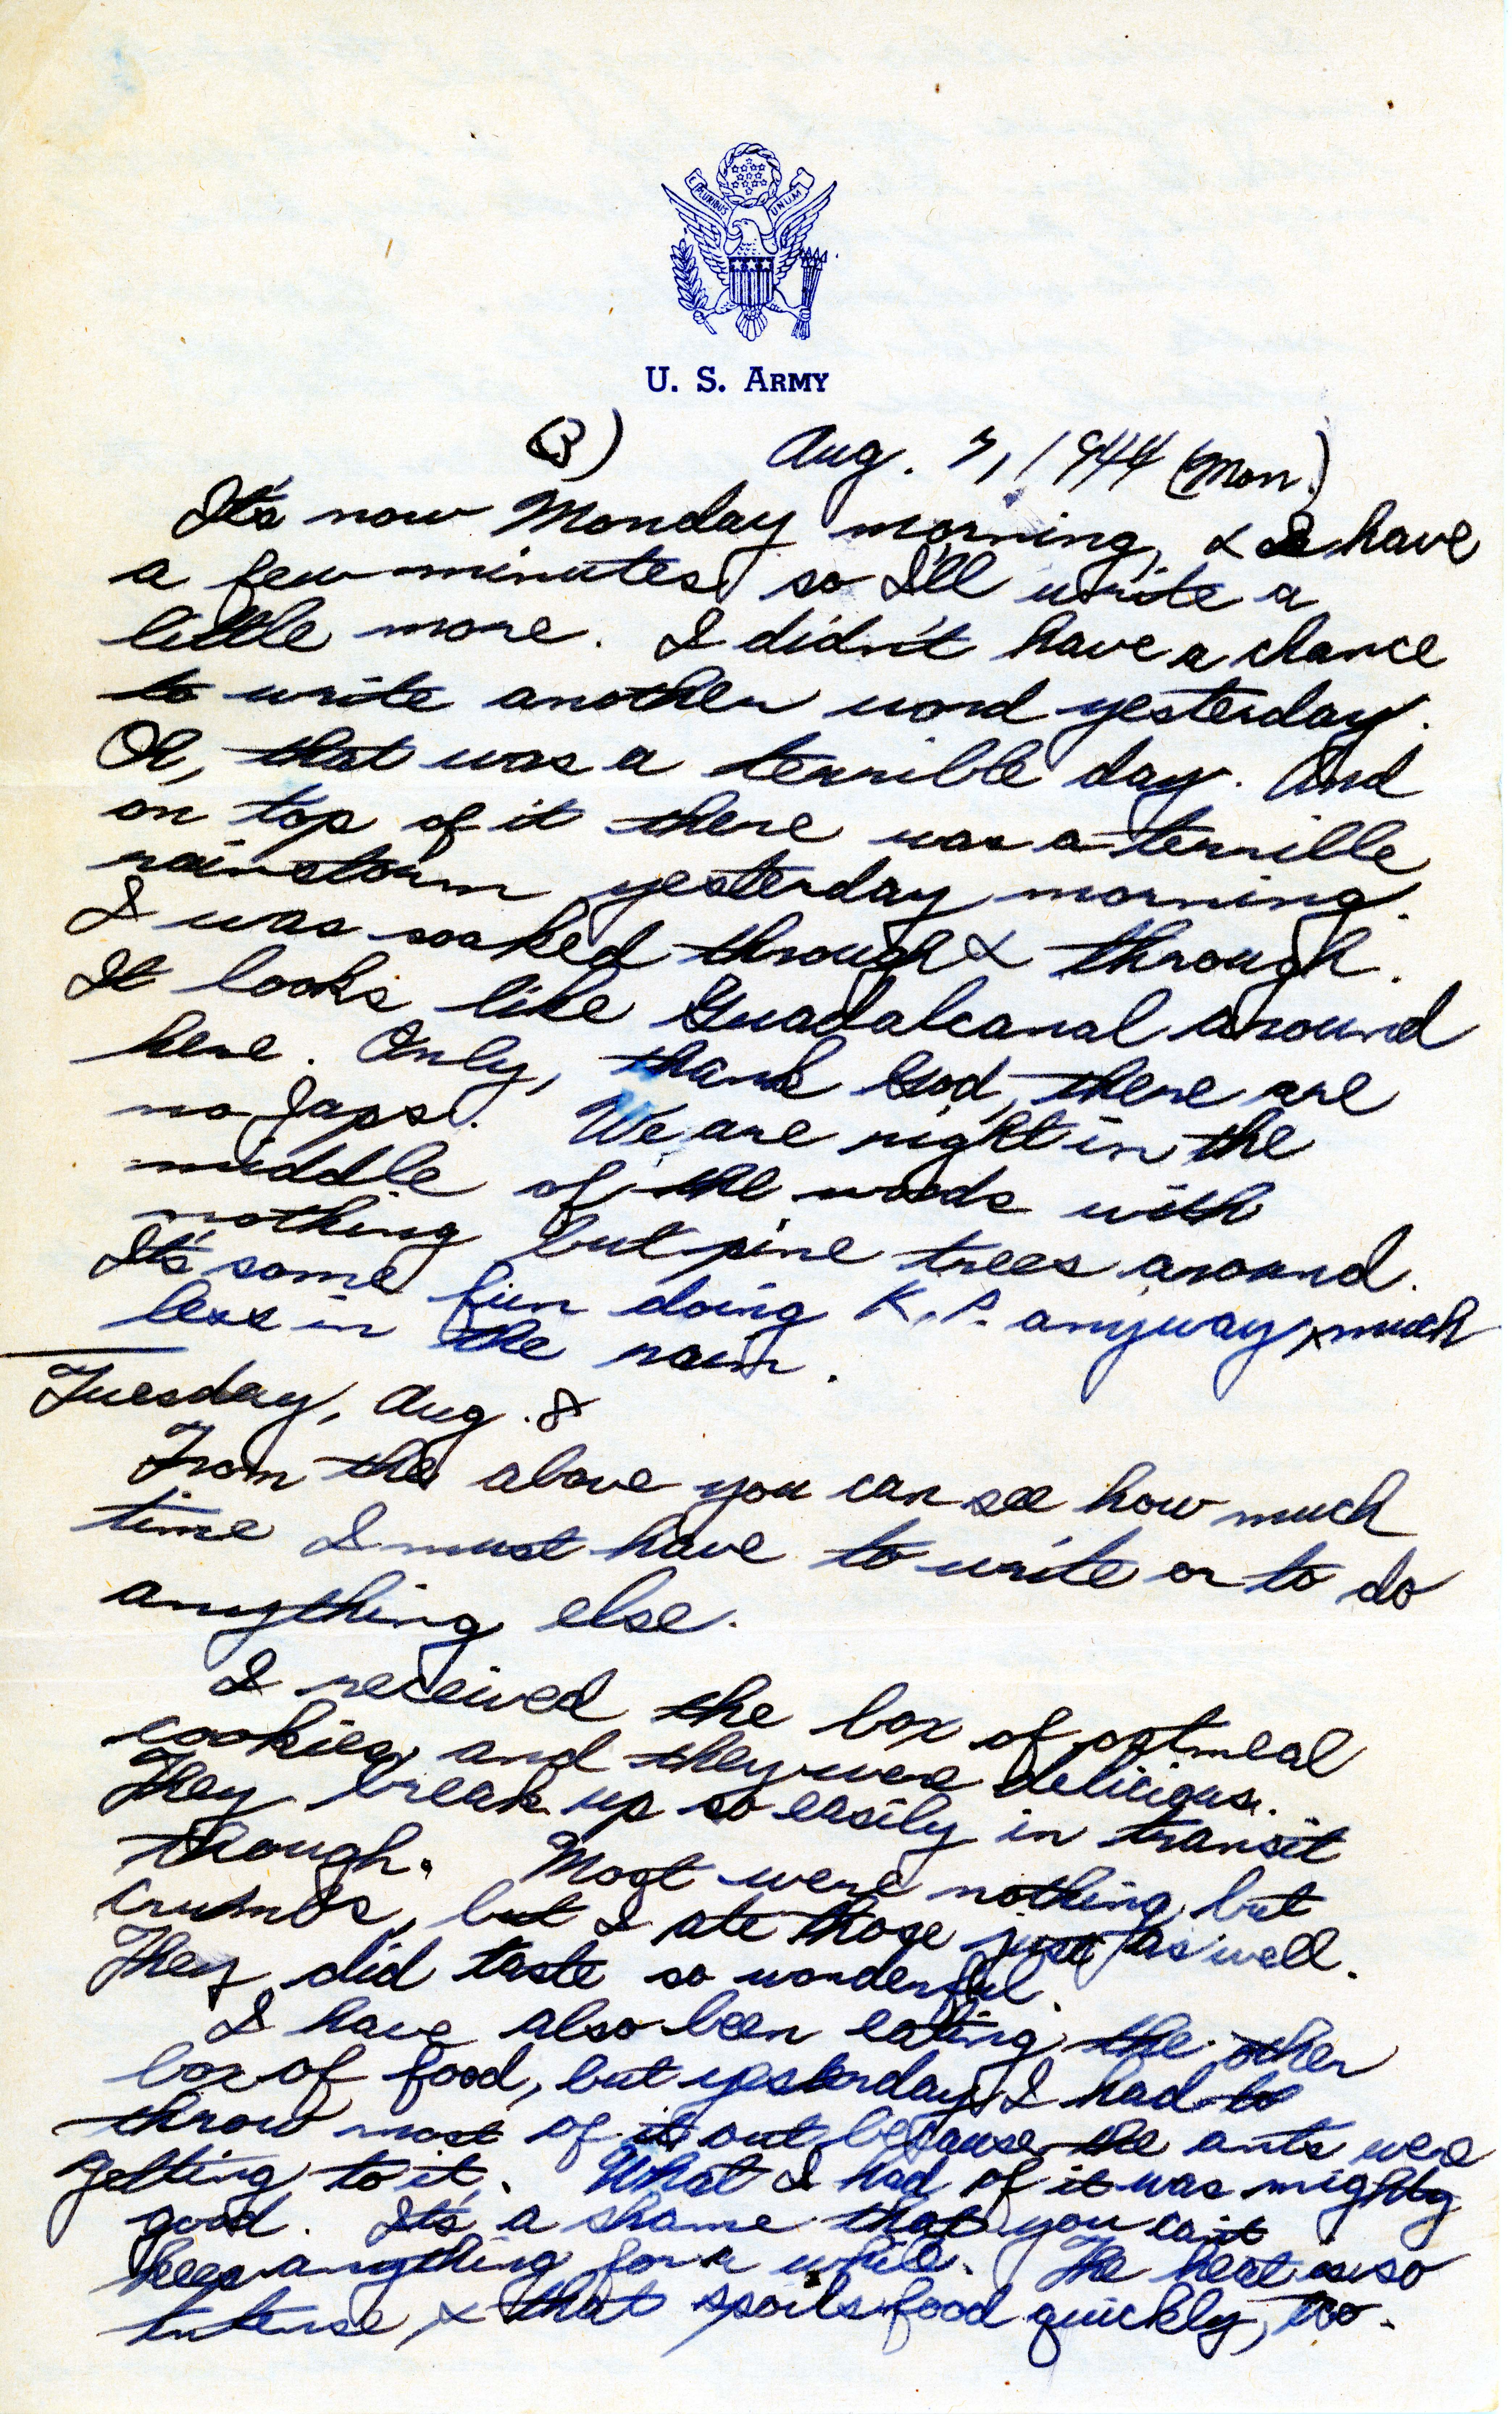 E PLURIBUS UNUM
U. S. ARMY
(3) Aug. 7, 1944 (Mon.)
It's now Monday morning, & I have
a few minutes so I'll write a
little more. I didn't have a chance
to write another word yesterday.
Oh, that was a terrible day. And
on top of it there was a terrible
rainstorm yesterday morning.
I was soaked through & through.
It looks like Guadalcanal around
here. Only, thank God, there are
no Japs. We are right in the
middle of the woods with
nothing but pine trees around.
It's some fun doing K.P. anyway, much
less in the rain.
Tuesday, Aug. 8
From the above you can see how much
time I must have to write or to do
anything else.
I received the box of oatmeal
cookies, and they were delicious.
They break up so easily in transit
though. Most were nothing but
crumbs, but I ate those just as well.
They did taste so wonderful.
I have also been eating the other
box of food, but yesterday I had to
throw most of it out because the ants were
getting to it. What I had of it was mighty
good. It's a shame that you can't
keep anything for a while. The heat is so
intense & that spoils food quickly, too.